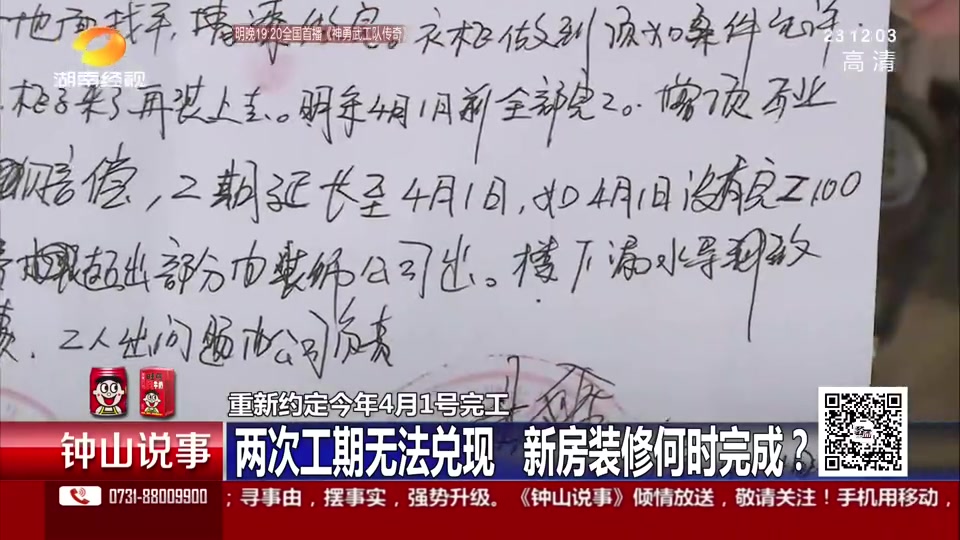 明晚19:20全国首播《神勇武工队传奇》
23 12 03
高清
湖南经视
地面找平,墙漆
衣柜做到
条件
柜子来了再装上去。明年4月1日前全部完工。
赔偿,工期延长至4月1日,如4月1日没有完工100
超出部分由装饰公司出。楼下漏水导致
责,工人出问题由公司负责
重新约定今年4月1号完工
钟山说事
两次工期无法兑现 新房装修何时完成?
0731-88009900
;寻事由,摆事实,强势升级。《钟山说事》倾情放送,敬请关注!手机用移动,